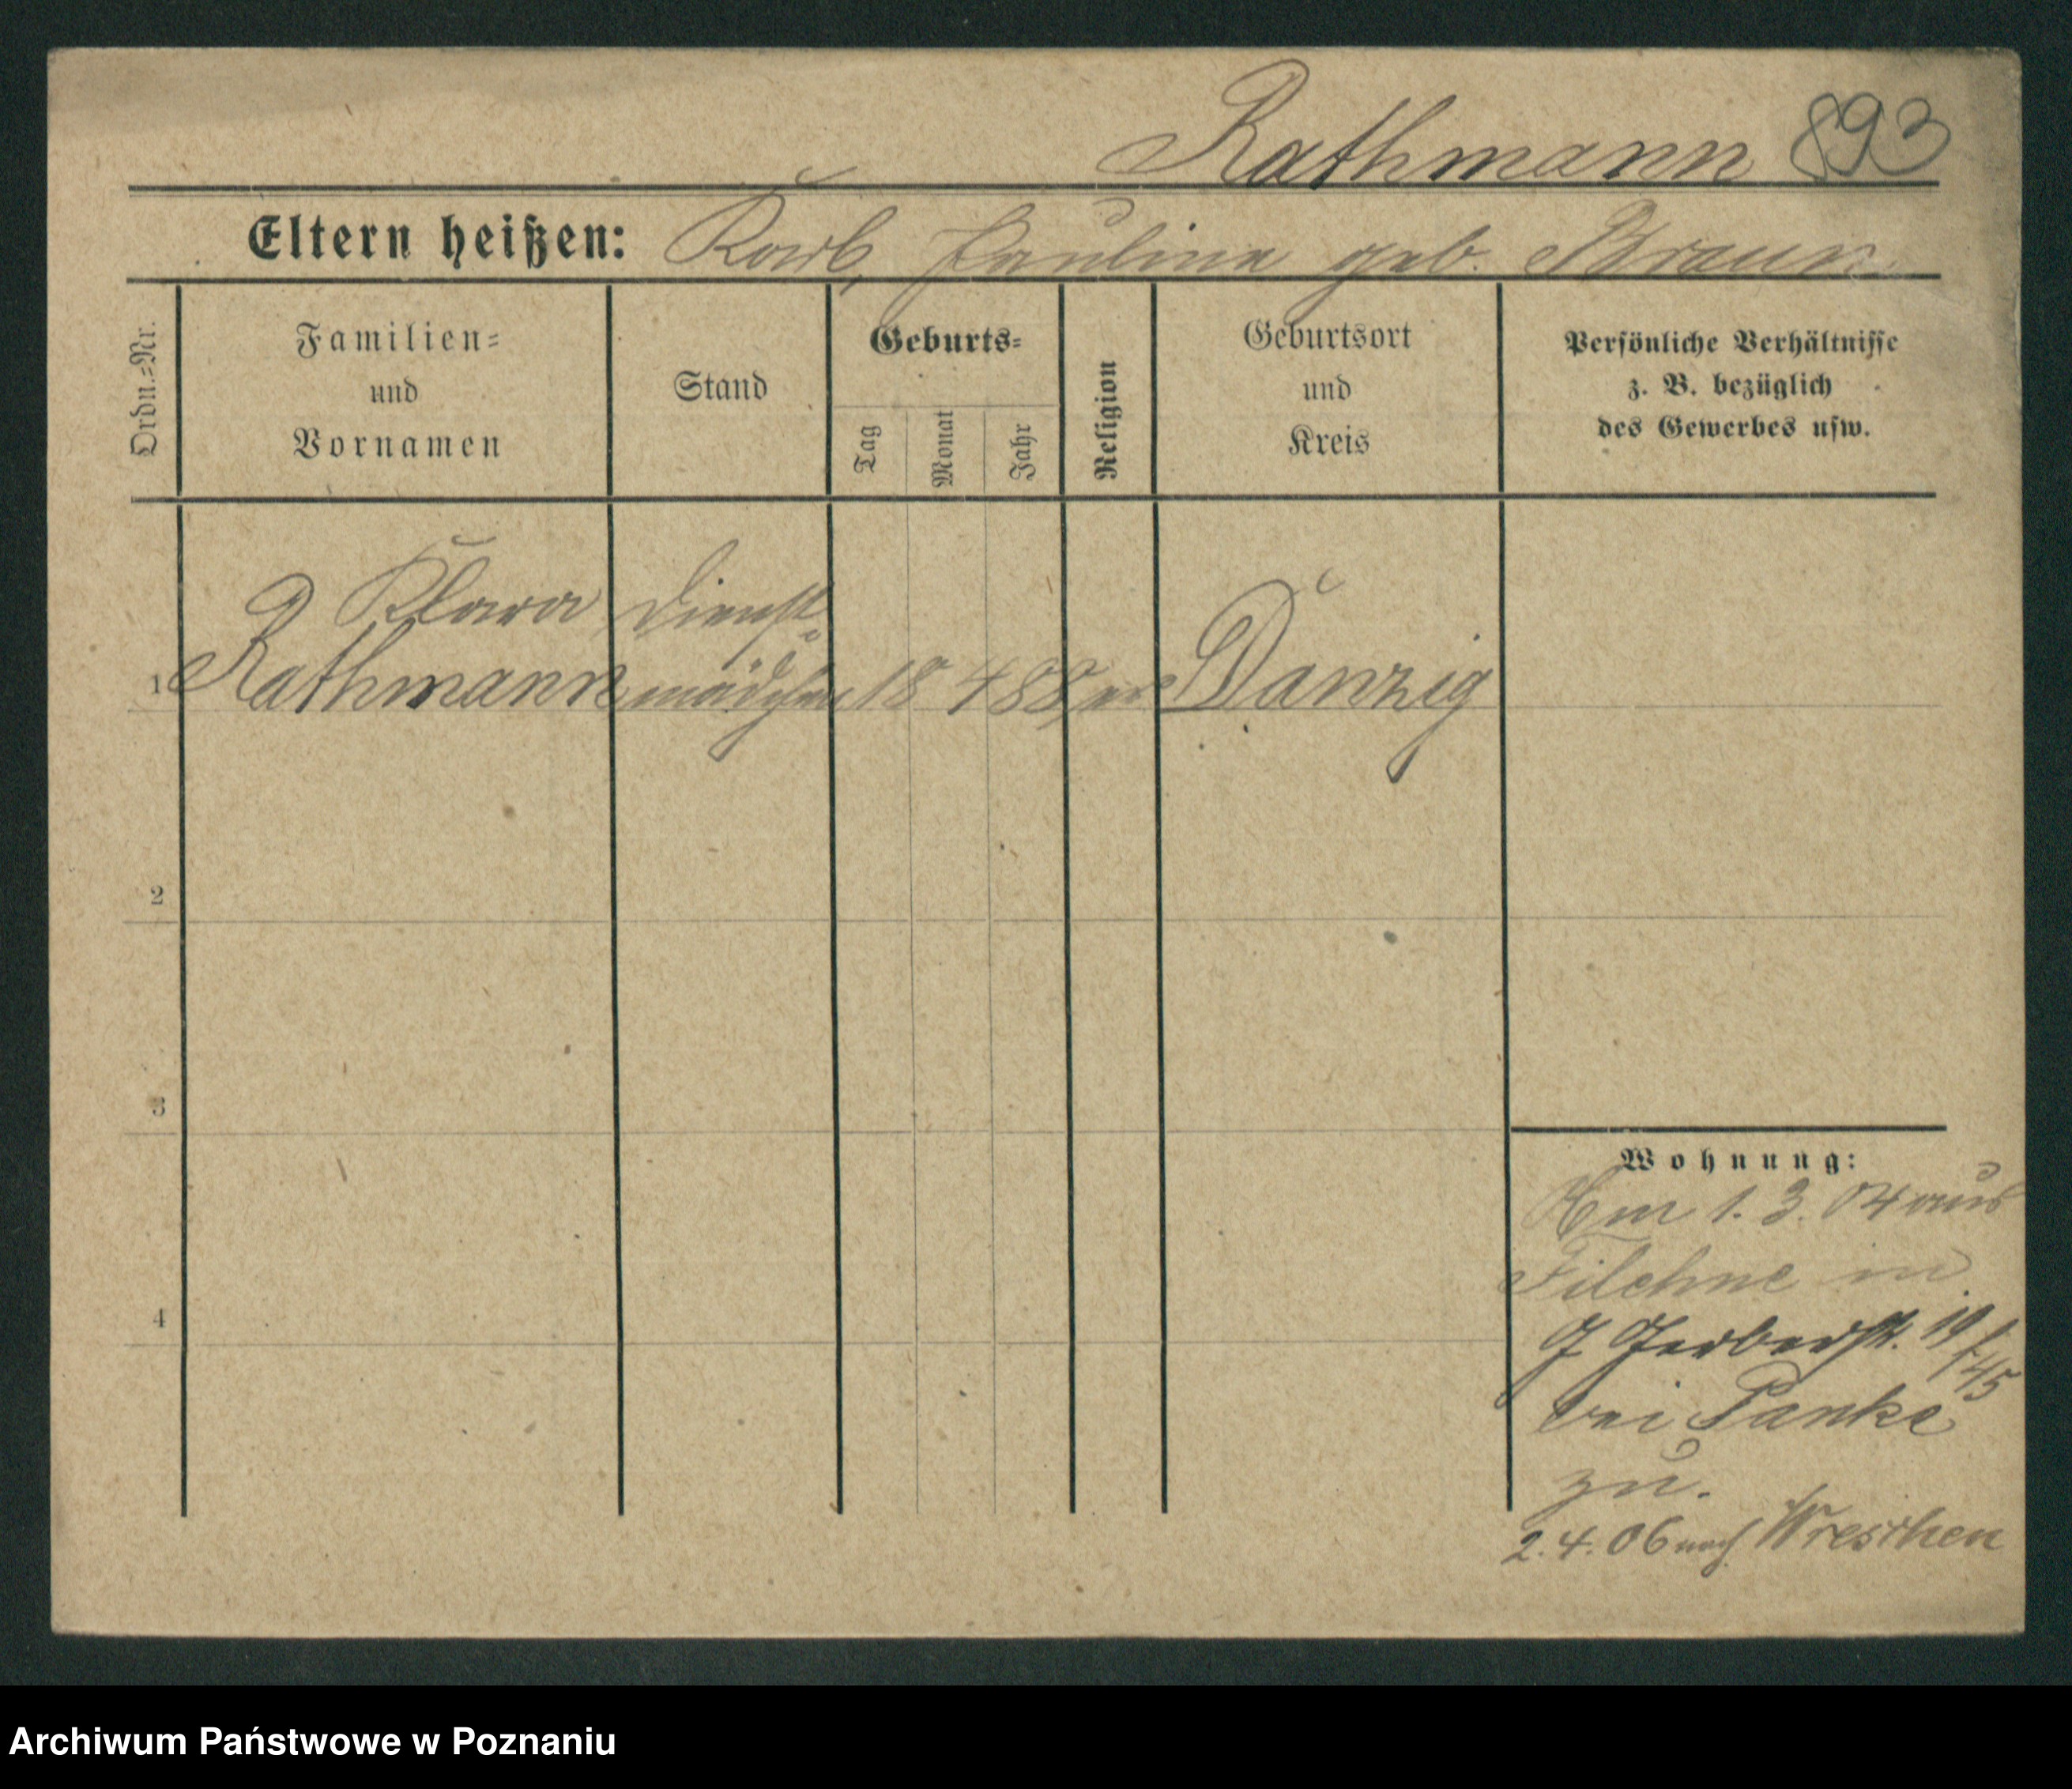 Rathmann 893
Eltern heißen: Karl, Pauline geb. Braun
Ordn.=Nr.
Familien=
und
Vornamen
Stand
Geburts=
Tag
Monat
Jahr
Religion
Geburtsort
und
Kreis
Persönliche Verhältnisse
z. B. bezüglich
des Gewerbes usw.
Klara Dienst-
1 Rathmann mädchen 18 4 88 ev. Danzig
2
3
4
Wohnung:
Am 1. 3. 04 aus
Filehne in
J Gerberst. 19/45
bei Panke
zu.
2. 4. 06 nach Wreschen
Archiwum Państwowe w Poznaniu